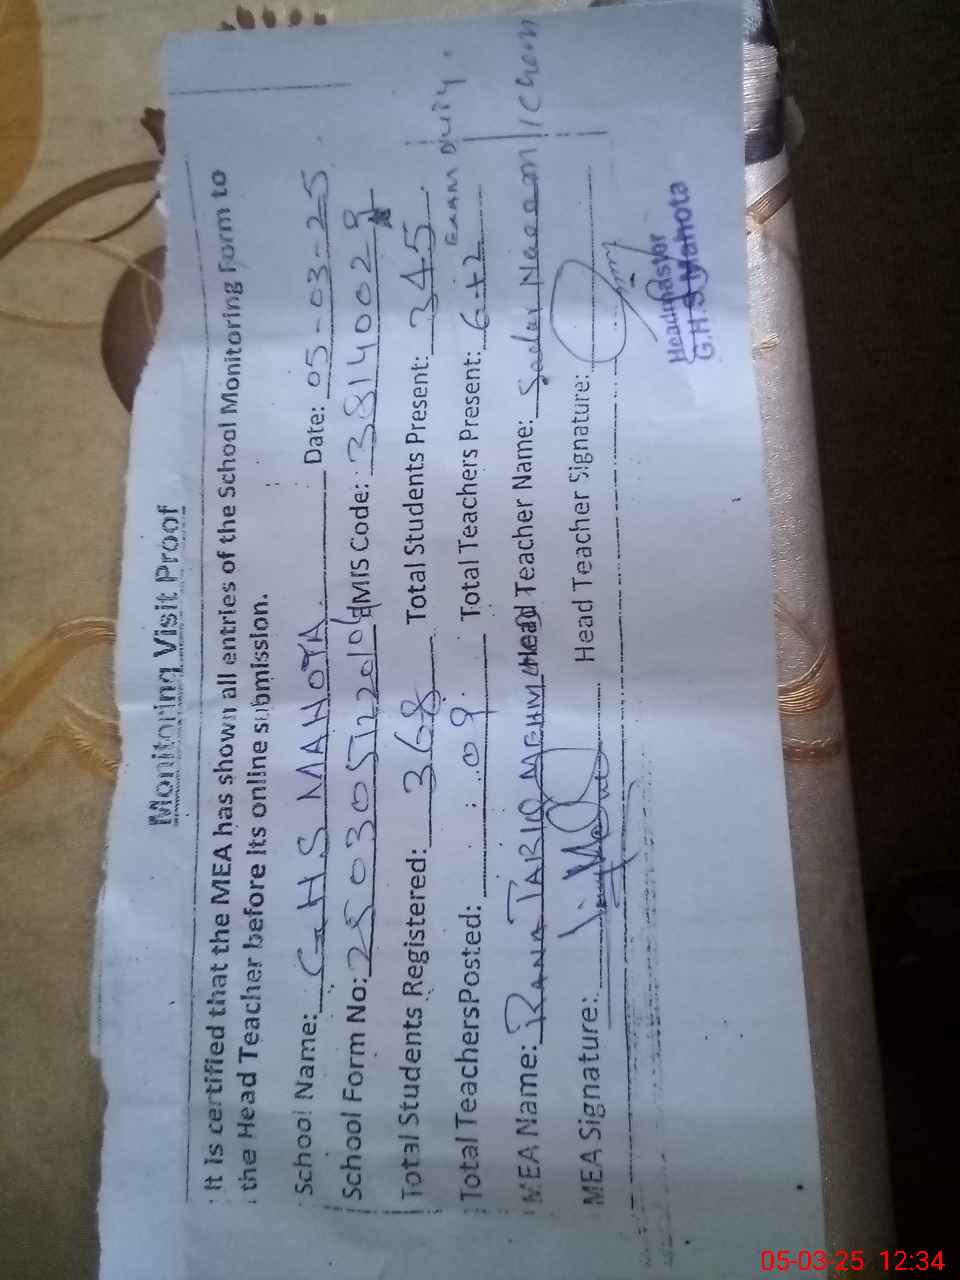 Monitoring Visit Proof
It is certified that the MEA has shown all entries of the School Monitoring Form to
the Head Teacher before its online submission.
School Name: GHS MAHOTA Date: 05-03-25
School Form No: EMIS Code: 38140029
Total Students Registered: 368 Total Students Present: 345
Total Teachers Posted: 09 Total Teachers Present: 6+2 EXAM Duty
MEA Name: RANA TARIQ MEHMOOD Head Teacher Name: Naeem
MEA Signature: Head Teacher Signature:
Headmaster
G.H.S Mahota
05-03-25 12:34